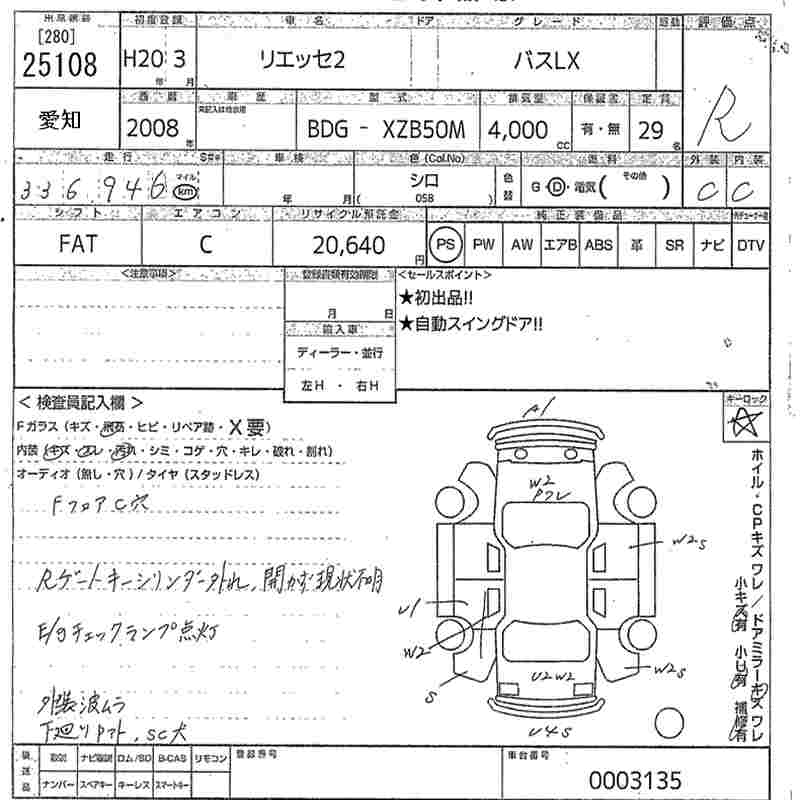 出品番号 初度登録 車名 ドア グレード 評価点
[280]
25108 H20 3 リエッセ2 バスLX R
年 月
愛知
西暦 車歴 型式 排気量 保証書 定員
2008年 BDG - XZB50M 4,000cc 有・無 29名
走行 車検 色(Col.No) 燃料 外装 内装
336,946 マイル km 年 月 シロ 色替 G・D・電気( その他 ) C C
( 058 )
シフト エアコン リサイクル預託金 純正装備品
FAT C 20,640円 PS PW AW エアB ABS 革 SR ナビ DTV
<注意事項> 登録書類有効期限 <セールスポイント>
月 日
★初出品!!
★自動スイングドア!!
輸入車
ディーラー・並行
左H ・ 右H
<検査員記入欄>
キーロック
Fガラス(キズ・飛石・ヒビ・リペア跡・X要)
内装(キズ・スレ・汚れ・シミ・コゲ・穴・キレ・破れ・割れ)
オーディオ(無し・穴)/タイヤ(スタッドレス)
Fフロアc穴
Rゲートキーシリンダー外れ、開かず現状不明
E/gチェックランプ点灯
外装波ムラ
下廻りサビト,sc大
A1
W2
W2s
U1
W2
S
U2W2
W2s
U4S
ホイル・CPキズワレ/ドアミラーキズワレ
小キズ有 小U有 補修有
取説 ナビ取説 ロム/SD B-CAS リモコン 登録番号 車台番号
ナンバー スペアキー キーレス スマートキー
0003135